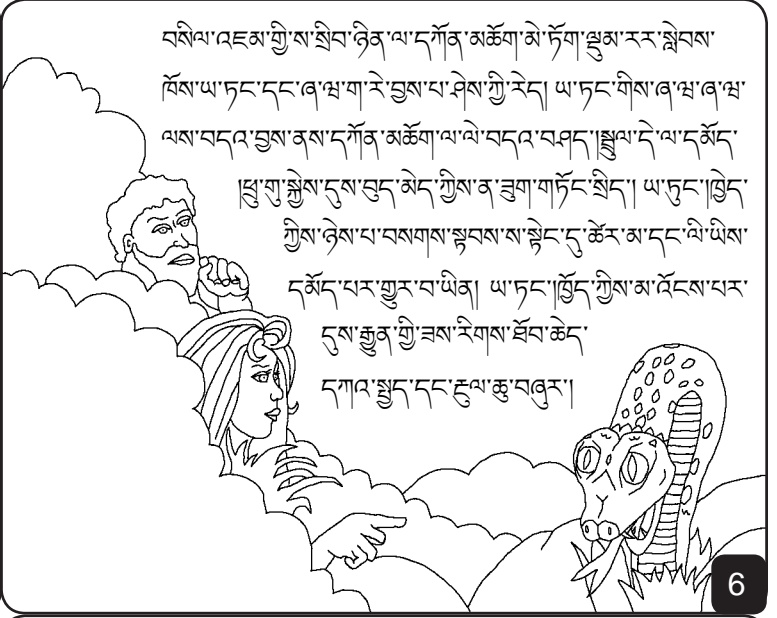 བསིལ་འཇམ་གྱི་ས་སྲིབ་ཉིན་ལ་དཀོན་མཆོག་མེ་ཏོག་ལྡུམ་རར་སླེབས་
ཁོས་ཡ་ཏང་དང་ཞ་ཝ་ག་རེ་བྱས་པ་ཤེས་ཀྱི་རེད། ཡ་ཏང་གིས་ཞ་ཝ་ཞ་ཝ་
ལས་བདའ་བྱས་ནས་དཀོན་མཆོག་ལ་ལེ་བདའ་བཤད་།སྦྲུལ་དེ་ལ་དམོད་
།ཕྲུ་གུ་སྐྱེས་དུས་བུད་མེད་ཀྱིས་ན་ཟུག་གཏོང་སྲིད་། ཡ་ཏུང་།ཁྱེད་
ཀྱིས་ཉེས་པ་བསགས་སྟབས་ས་སྟེང་དུ་ཚེར་མ་དང་ལི་ཡིས་
དམོད་པར་གྱུར་བ་ཡིན། ཡ་ཏང་།ཁྱོད་ཀྱིས་མ་འོངས་པར་
དུས་རྒྱུན་གྱི་ཟས་རིགས་ཐོབ་ཆེད་
དཀའ་སྤྱད་དང་རྔུལ་ཆུ་བཞུར་།
6